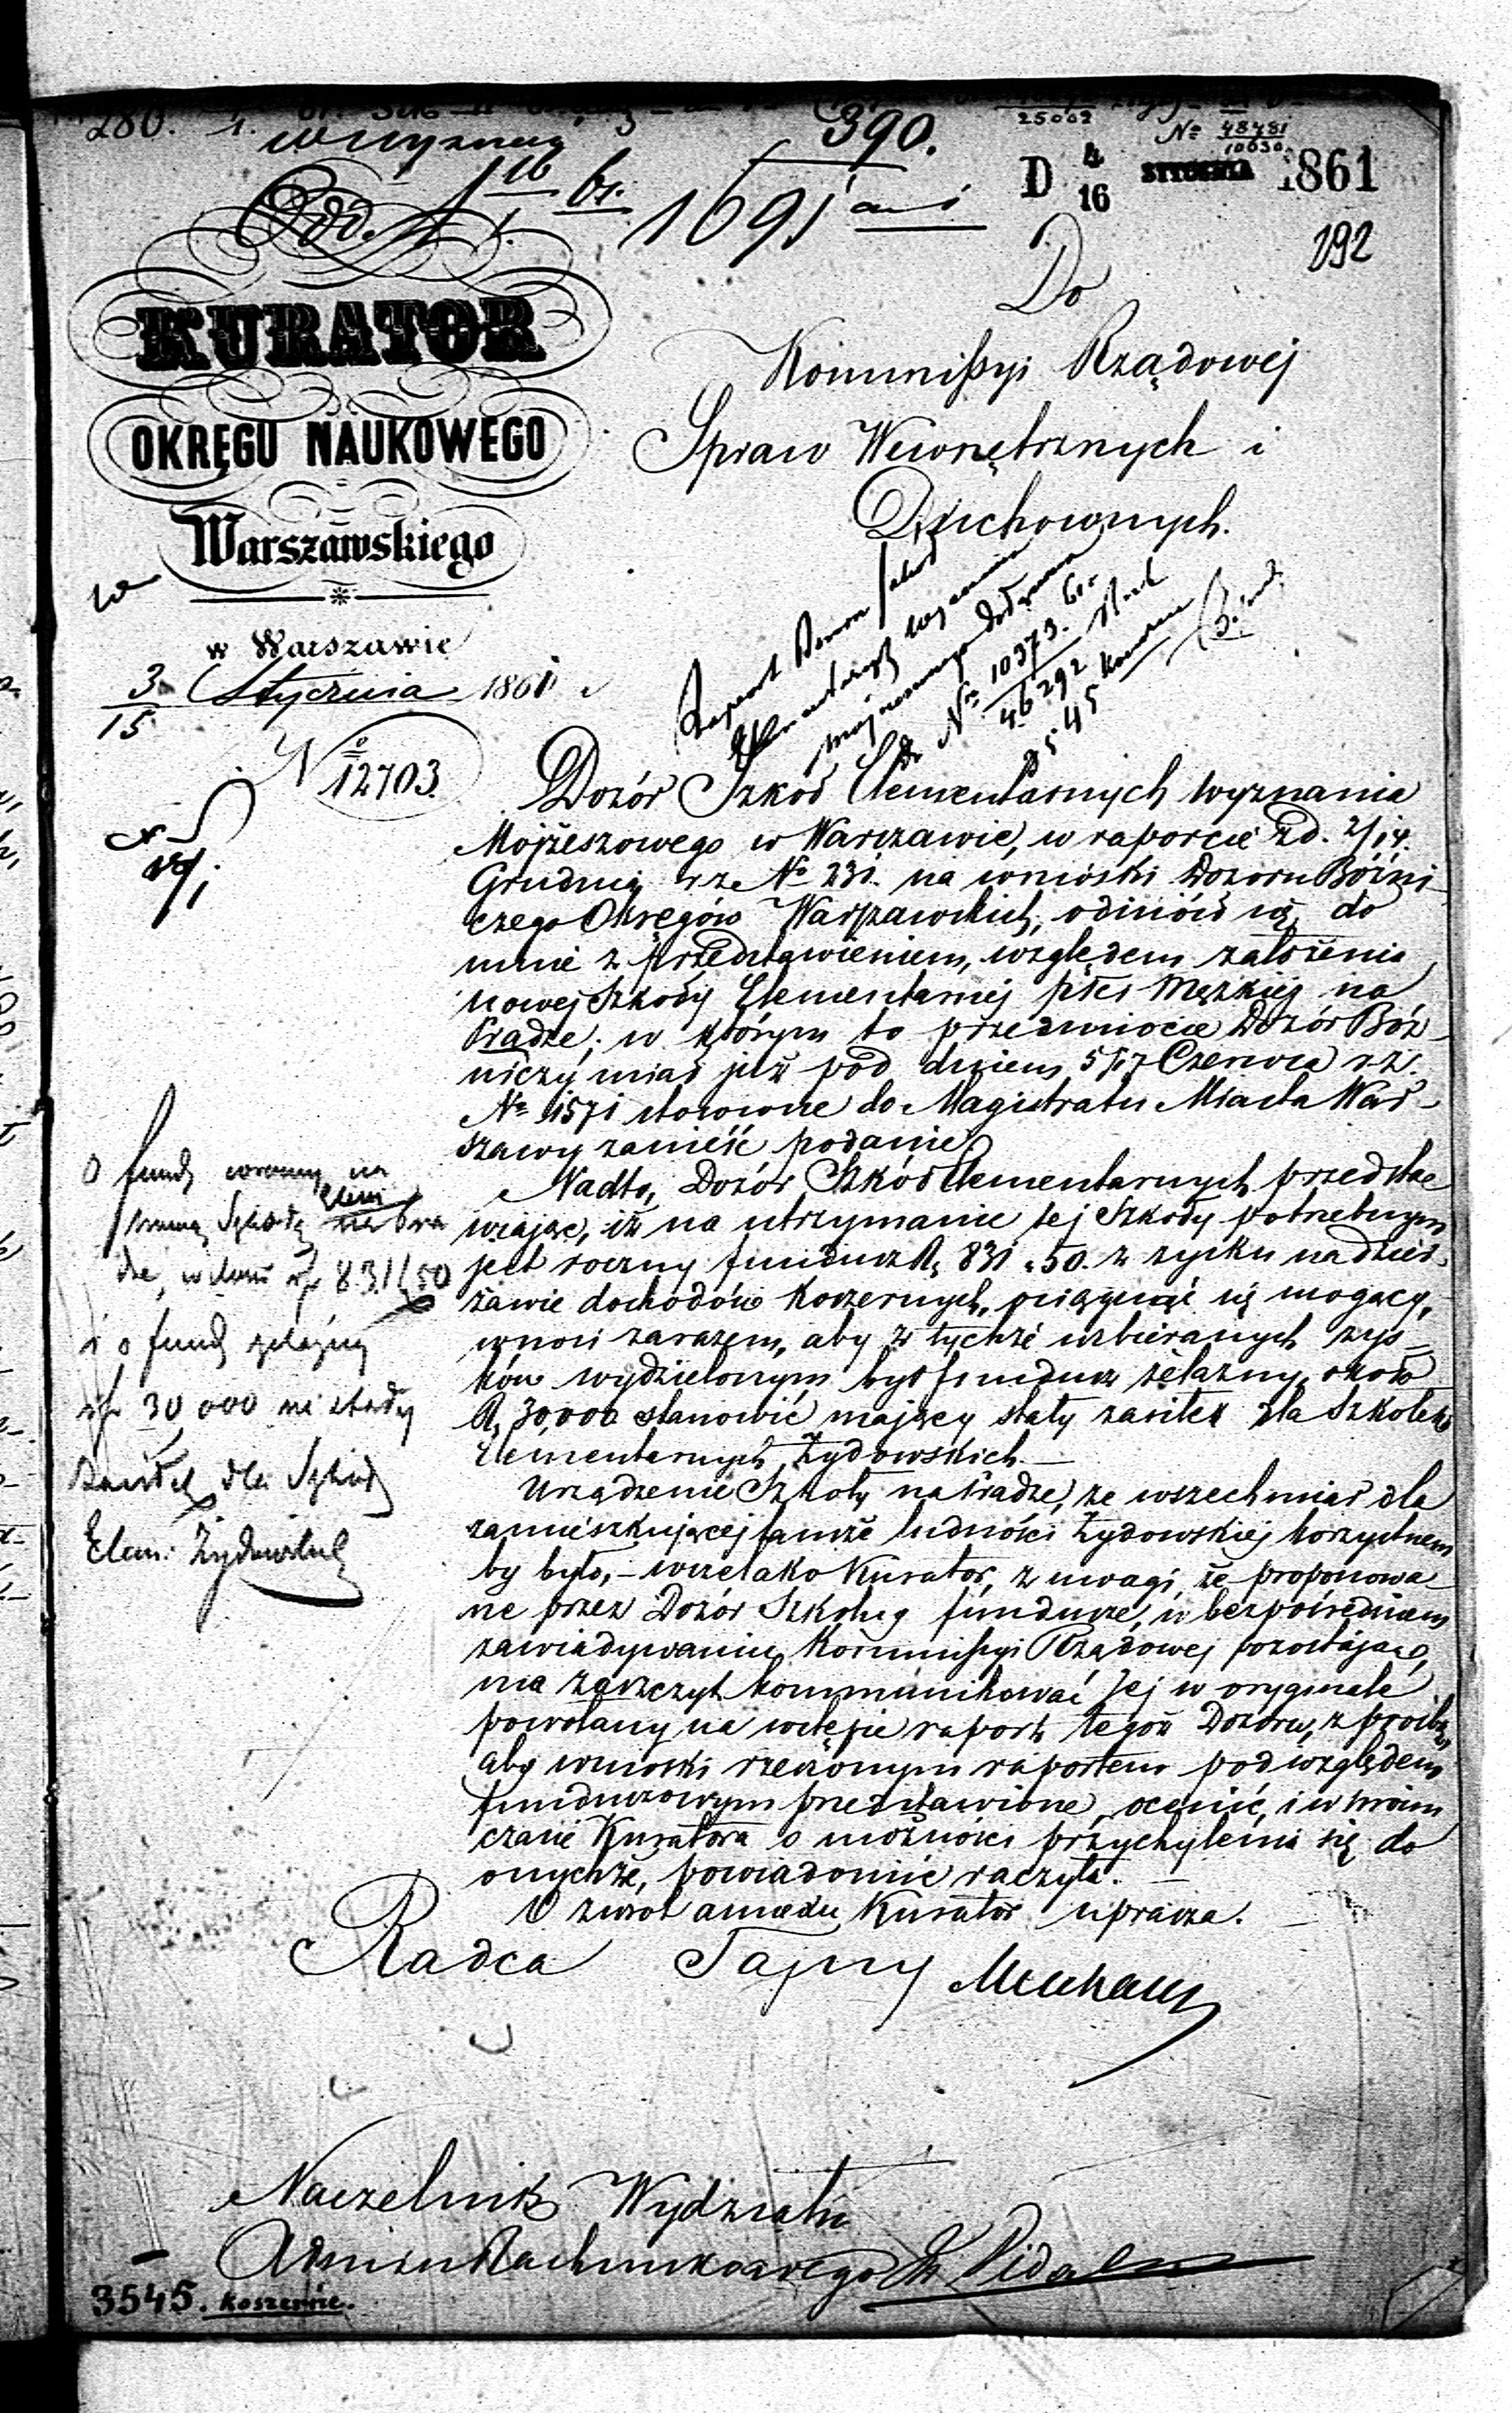 280.
390.
25002
№ 48481
10030
D 4/16 STYCZNIA 1861
192
1691
KURATOR
OKRĘGU NAUKOWEGO
Warszawskiego
w Warszawie
3/15 Stycznia 1861
№ 12703.
Do
Kommissyi Rządowej
Spraw Wewnętrznych i
Duchownych.
Raport Dozoru Szkół
Elementarnych wyznania
mojżeszowego dołączono
do № 10373. 61.
46292
3545 koszerne
Dozór Szkół Elementarnych wyznania
Mojżeszowego w Warszawie, w raporcie z d. 2/14.
Grudnia r. z. № 231. na wnioski Dozoru Bóźni-
czego Okręgów Warszawskich, odniósł się do
mnie z przedstawieniem, względem założenia
nowej Szkoły Elementarnej płci Męzkiej na
Pradze; w którym to przedmiocie Dozór Bóź-
niczy miał już pod dniem 5/17 Czerwca r. z.
№ 1571 stosowne do Magistratu Miasta War-
szawy zanieść podanie.
Nadto, Dozór Szkół Elementarnych przedsta-
wiając, iż na utrzymanie tej Szkoły potrzebnym
jest roczny fundusz Rs 831 . 50. z zysku na dzier-
żawie dochodów koszernych, osiągnąć się mogący,
wnosi zarazem, aby z tychże uzbieranych zys-
ków wydzielonym był fundusz żelazny, około
Rs 30000 stanowić mający stały zasiłek dla Szkółek
Elementarnych Żydowskich.—
Urządzenie Szkoły na Pradze, ze wszech miar dla
zamieszkującej tamże ludności Żydowskiej korzystnem
by było,— wszelako Kurator, z uwagi, że proponowa-
ne przez Dozór Szkolny fundusze, w bezpośredniem
zawiadywaniu Kommissyi Rządowej pozostające,
ma zaszczyt kommunikować Jej w oryginale
powołany na wstępie raport tegoż Dozoru, z prośbą,
aby wnioski rzeczonym raportem pod względem
funduszowym przedstawione, ocenić, i w swoim
czasie Kuratora o możności przychylenia się do
onychże, powiadomić raczyła.—
O zwrot annexu Kurator uprasza.
O fundusz roczny na
nową Szkołę Elem
na Pra
dze, w ilości rs 831/50
i o fundusz żelazny
rs 30,000 na stały
zasiłek dla Szkół
Elem: Żydowskich
Radca Tajny Muchanow
Naczelnik Wydziału
Admin: Rachunkowego
3545. Koszerne.